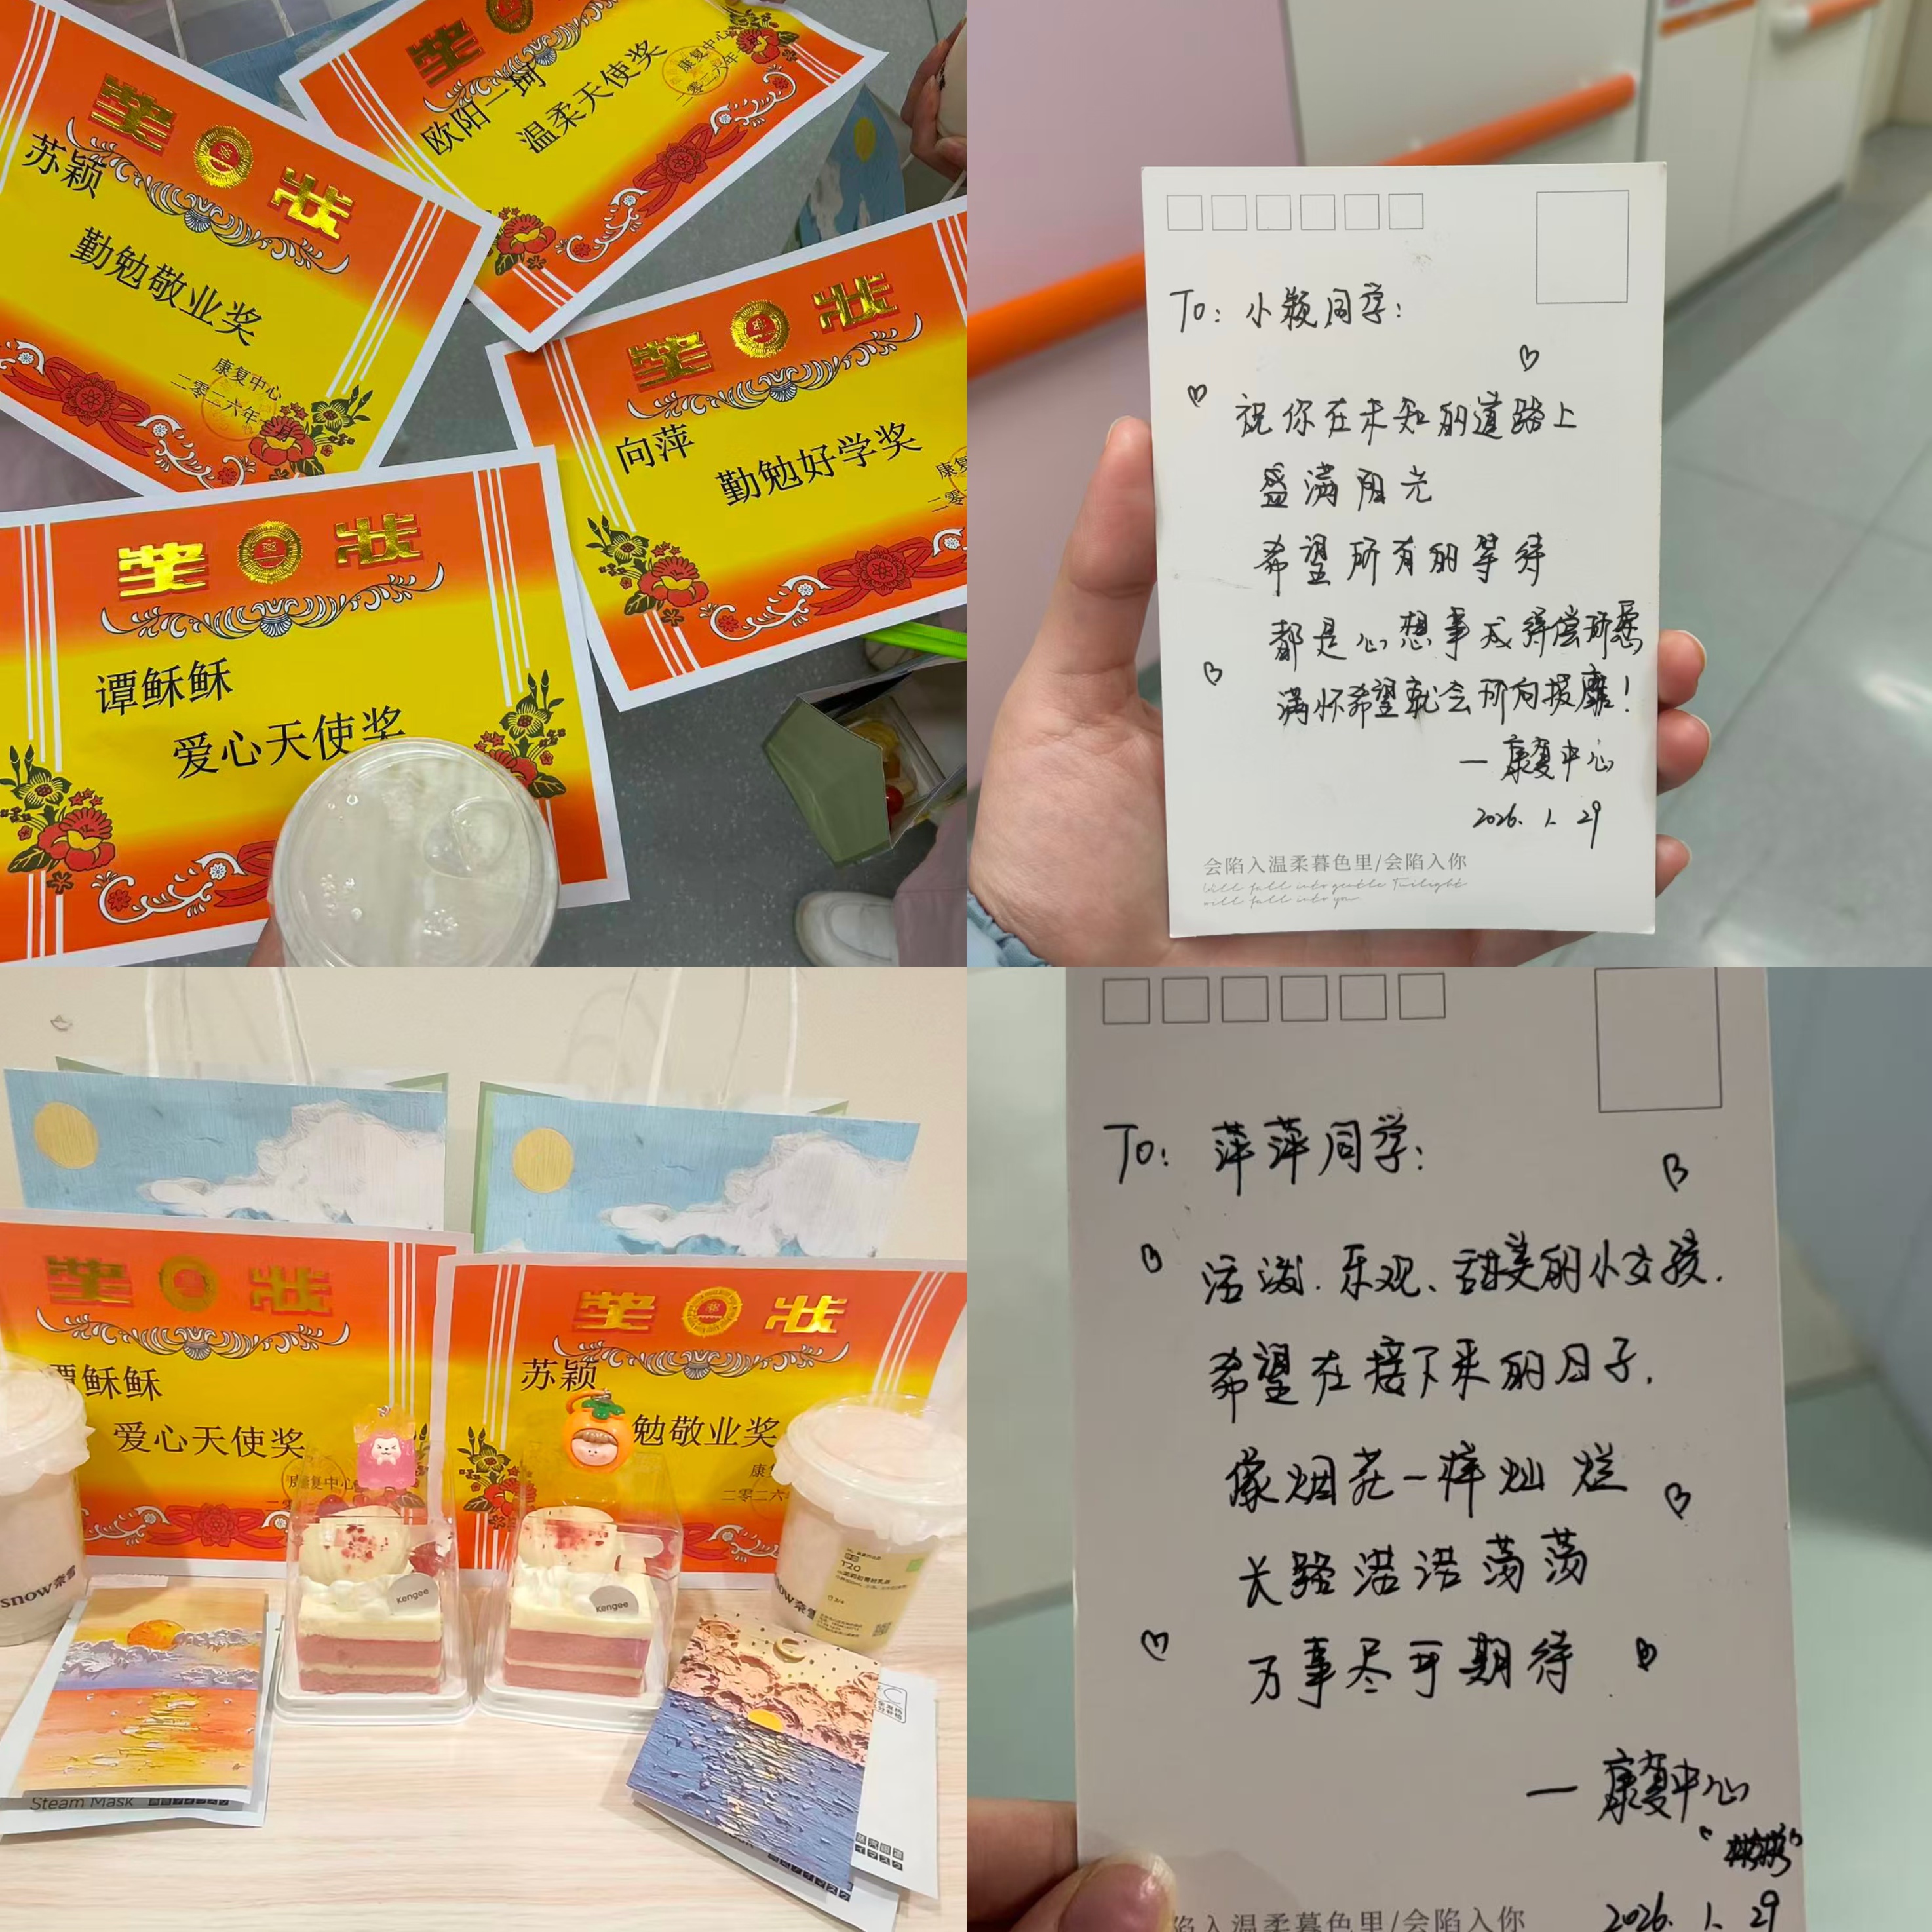 奖状
欧阳一珂
温柔天使奖
康复中心
二零二六年
奖状
苏颖
勤勉敬业奖
康复中心
二零二六年
奖状
向萍
勤勉好学奖
康复
二零
奖状
谭稣稣
爱心天使奖
To: 小颖同学:
祝你在未知的道路上
盛满阳光
希望所有的等待
都是心想事成得偿所愿
满怀希望就会所向披靡!
—康复中心
2026.1.29
会陷入温柔暮色里/会陷入你
Will fall into gentle Twilight
will fall into you
奖状
谭稣稣
爱心天使奖
康复中心
二零
奖状
苏颖
勉敬业奖
康复
二零二六
snow奈雪
Kengee
Kengee
now奈雪
T20
Steam Mask
To: 萍萍同学:
活泼、乐观、甜美的小女孩.
希望在接下来的日子,
像烟花一样灿烂
长路浩浩荡荡
万事尽可期待
—康复中心
2026.1.29
陷入温柔暮色里/会陷入你